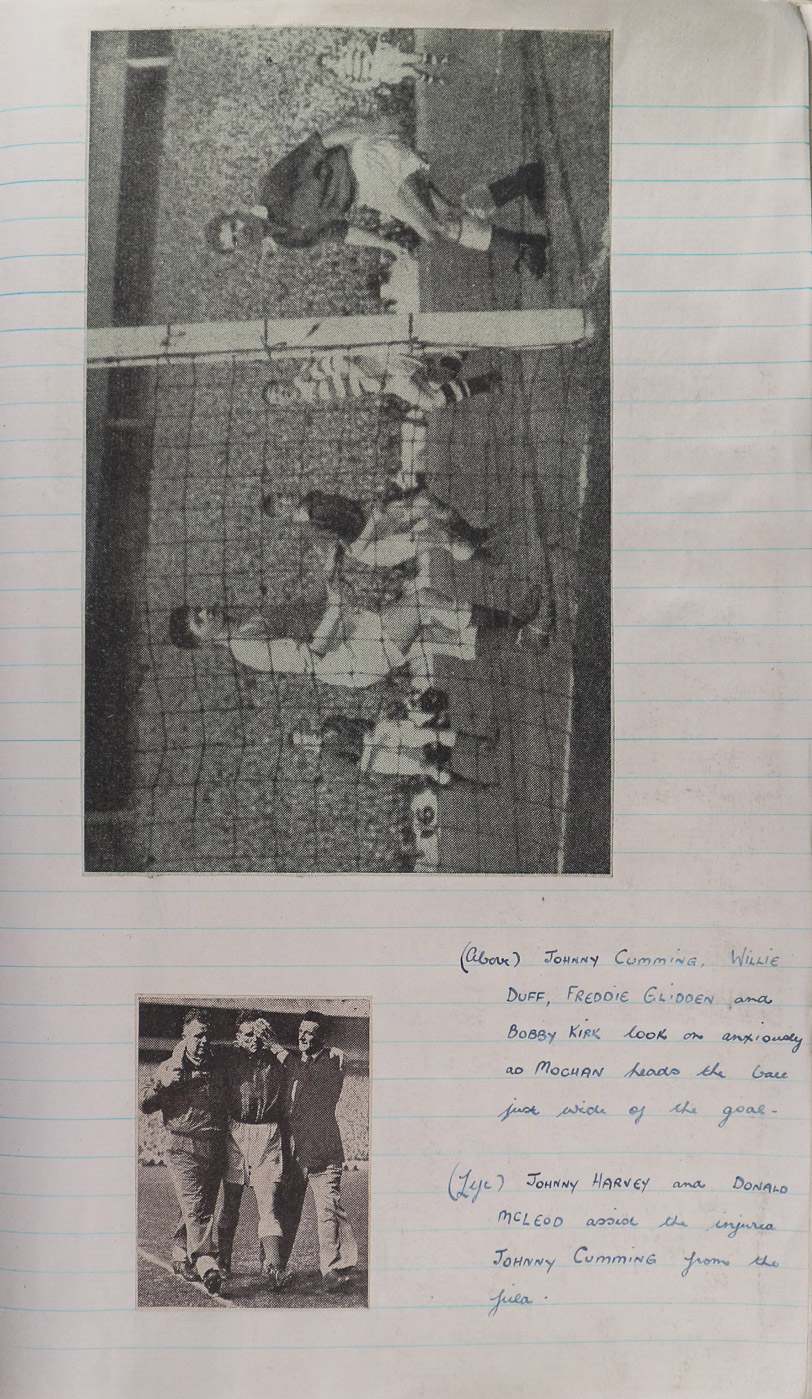 (Above) JOHNNY CUMMING, WILLIE
DUFF, FREDDIE GLIDDEN and
BOBBY KIRK look on anxiously
as MOCHAN heads the ball
just wide of the goal-
(Left) JOHNNY HARVEY and DONALD
MCLEOD assist the injured
JOHNNY CUMMING from the
field.